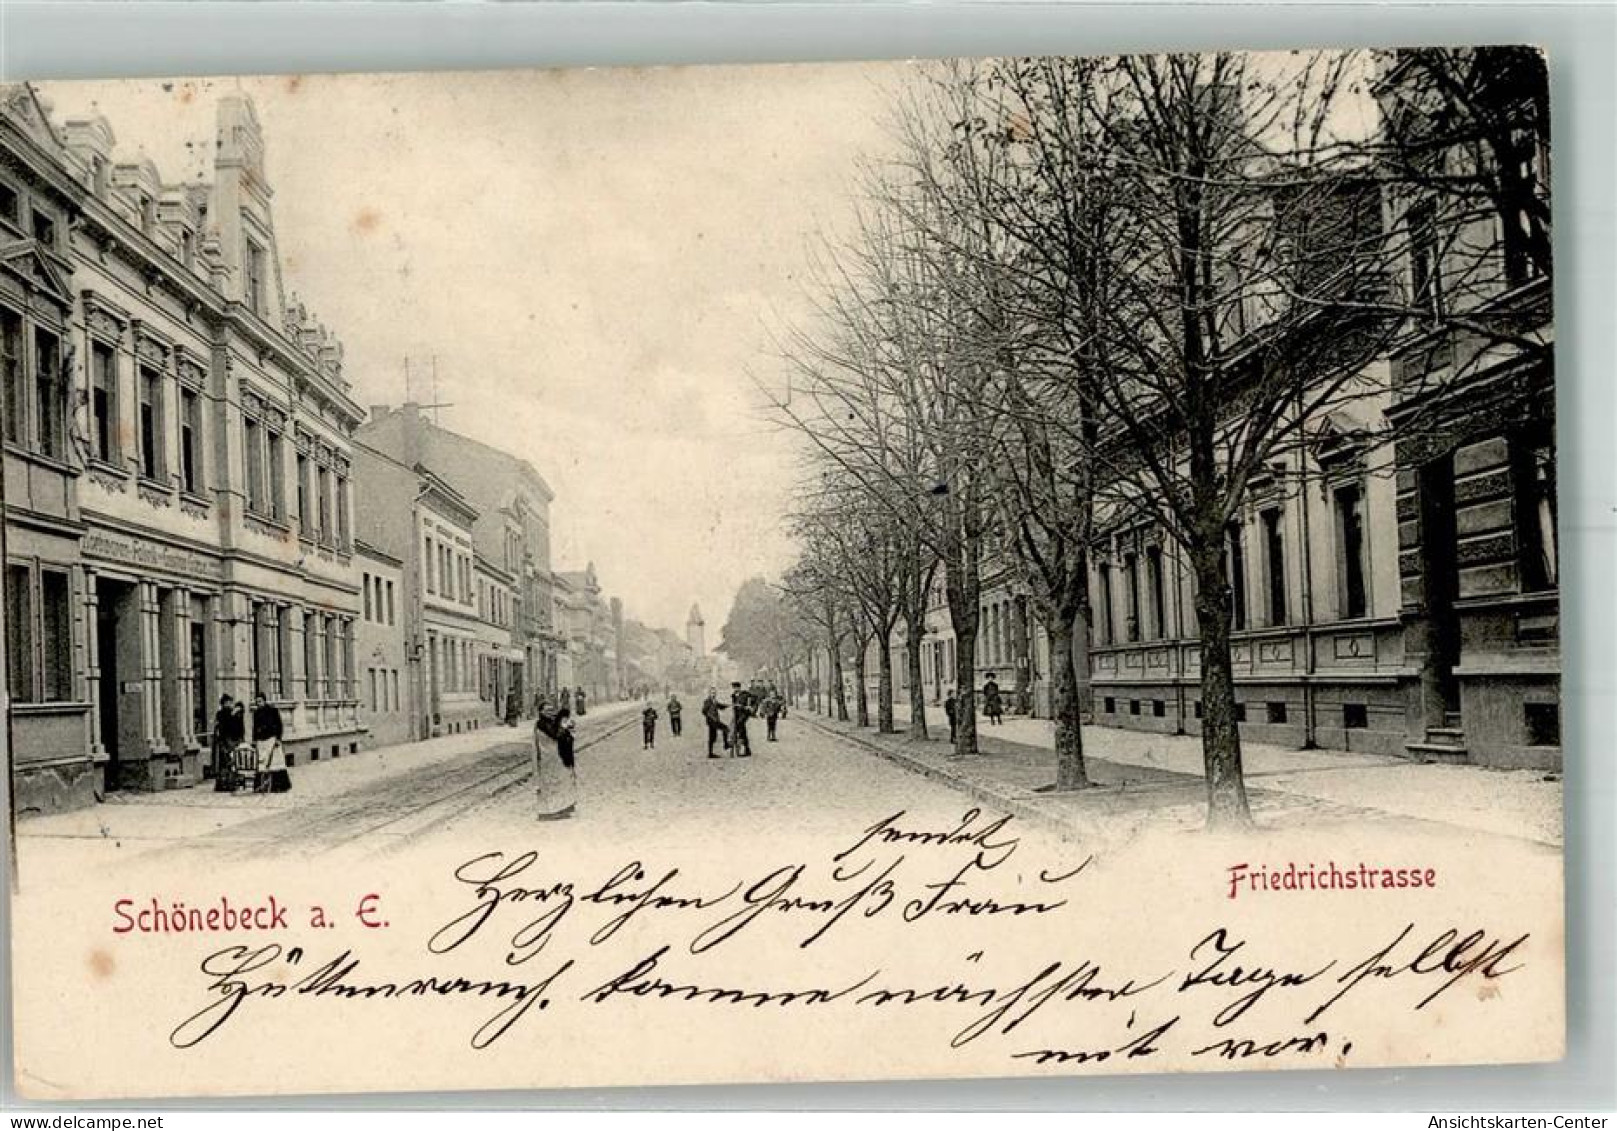 sendet
Schönebeck a. E.
Herzlichen Gruß Frau
Friedrichstrasse
Hüttenrauch. komme nächster Tage selbst
mit vor.
Ansichtskarten-Center